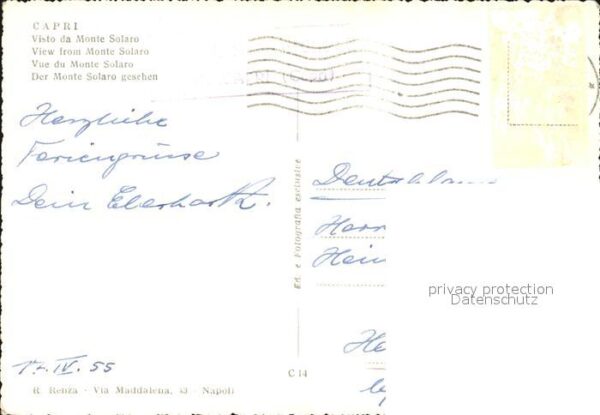 CAPRI
Visto da Monte Solaro
View from Monte Solaro
Vue du Monte Solaro
Der Monte Solaro gesehen
Herzliche
Feriengrüsse
Dein Eberhard.
IV. 55
Ed. e Fotografia esclusive
Deutschland
Herr
Hein
privacy protection
Datenschutz
He
C 14
R. Renza - Via Maddalena, 43 - Napoli